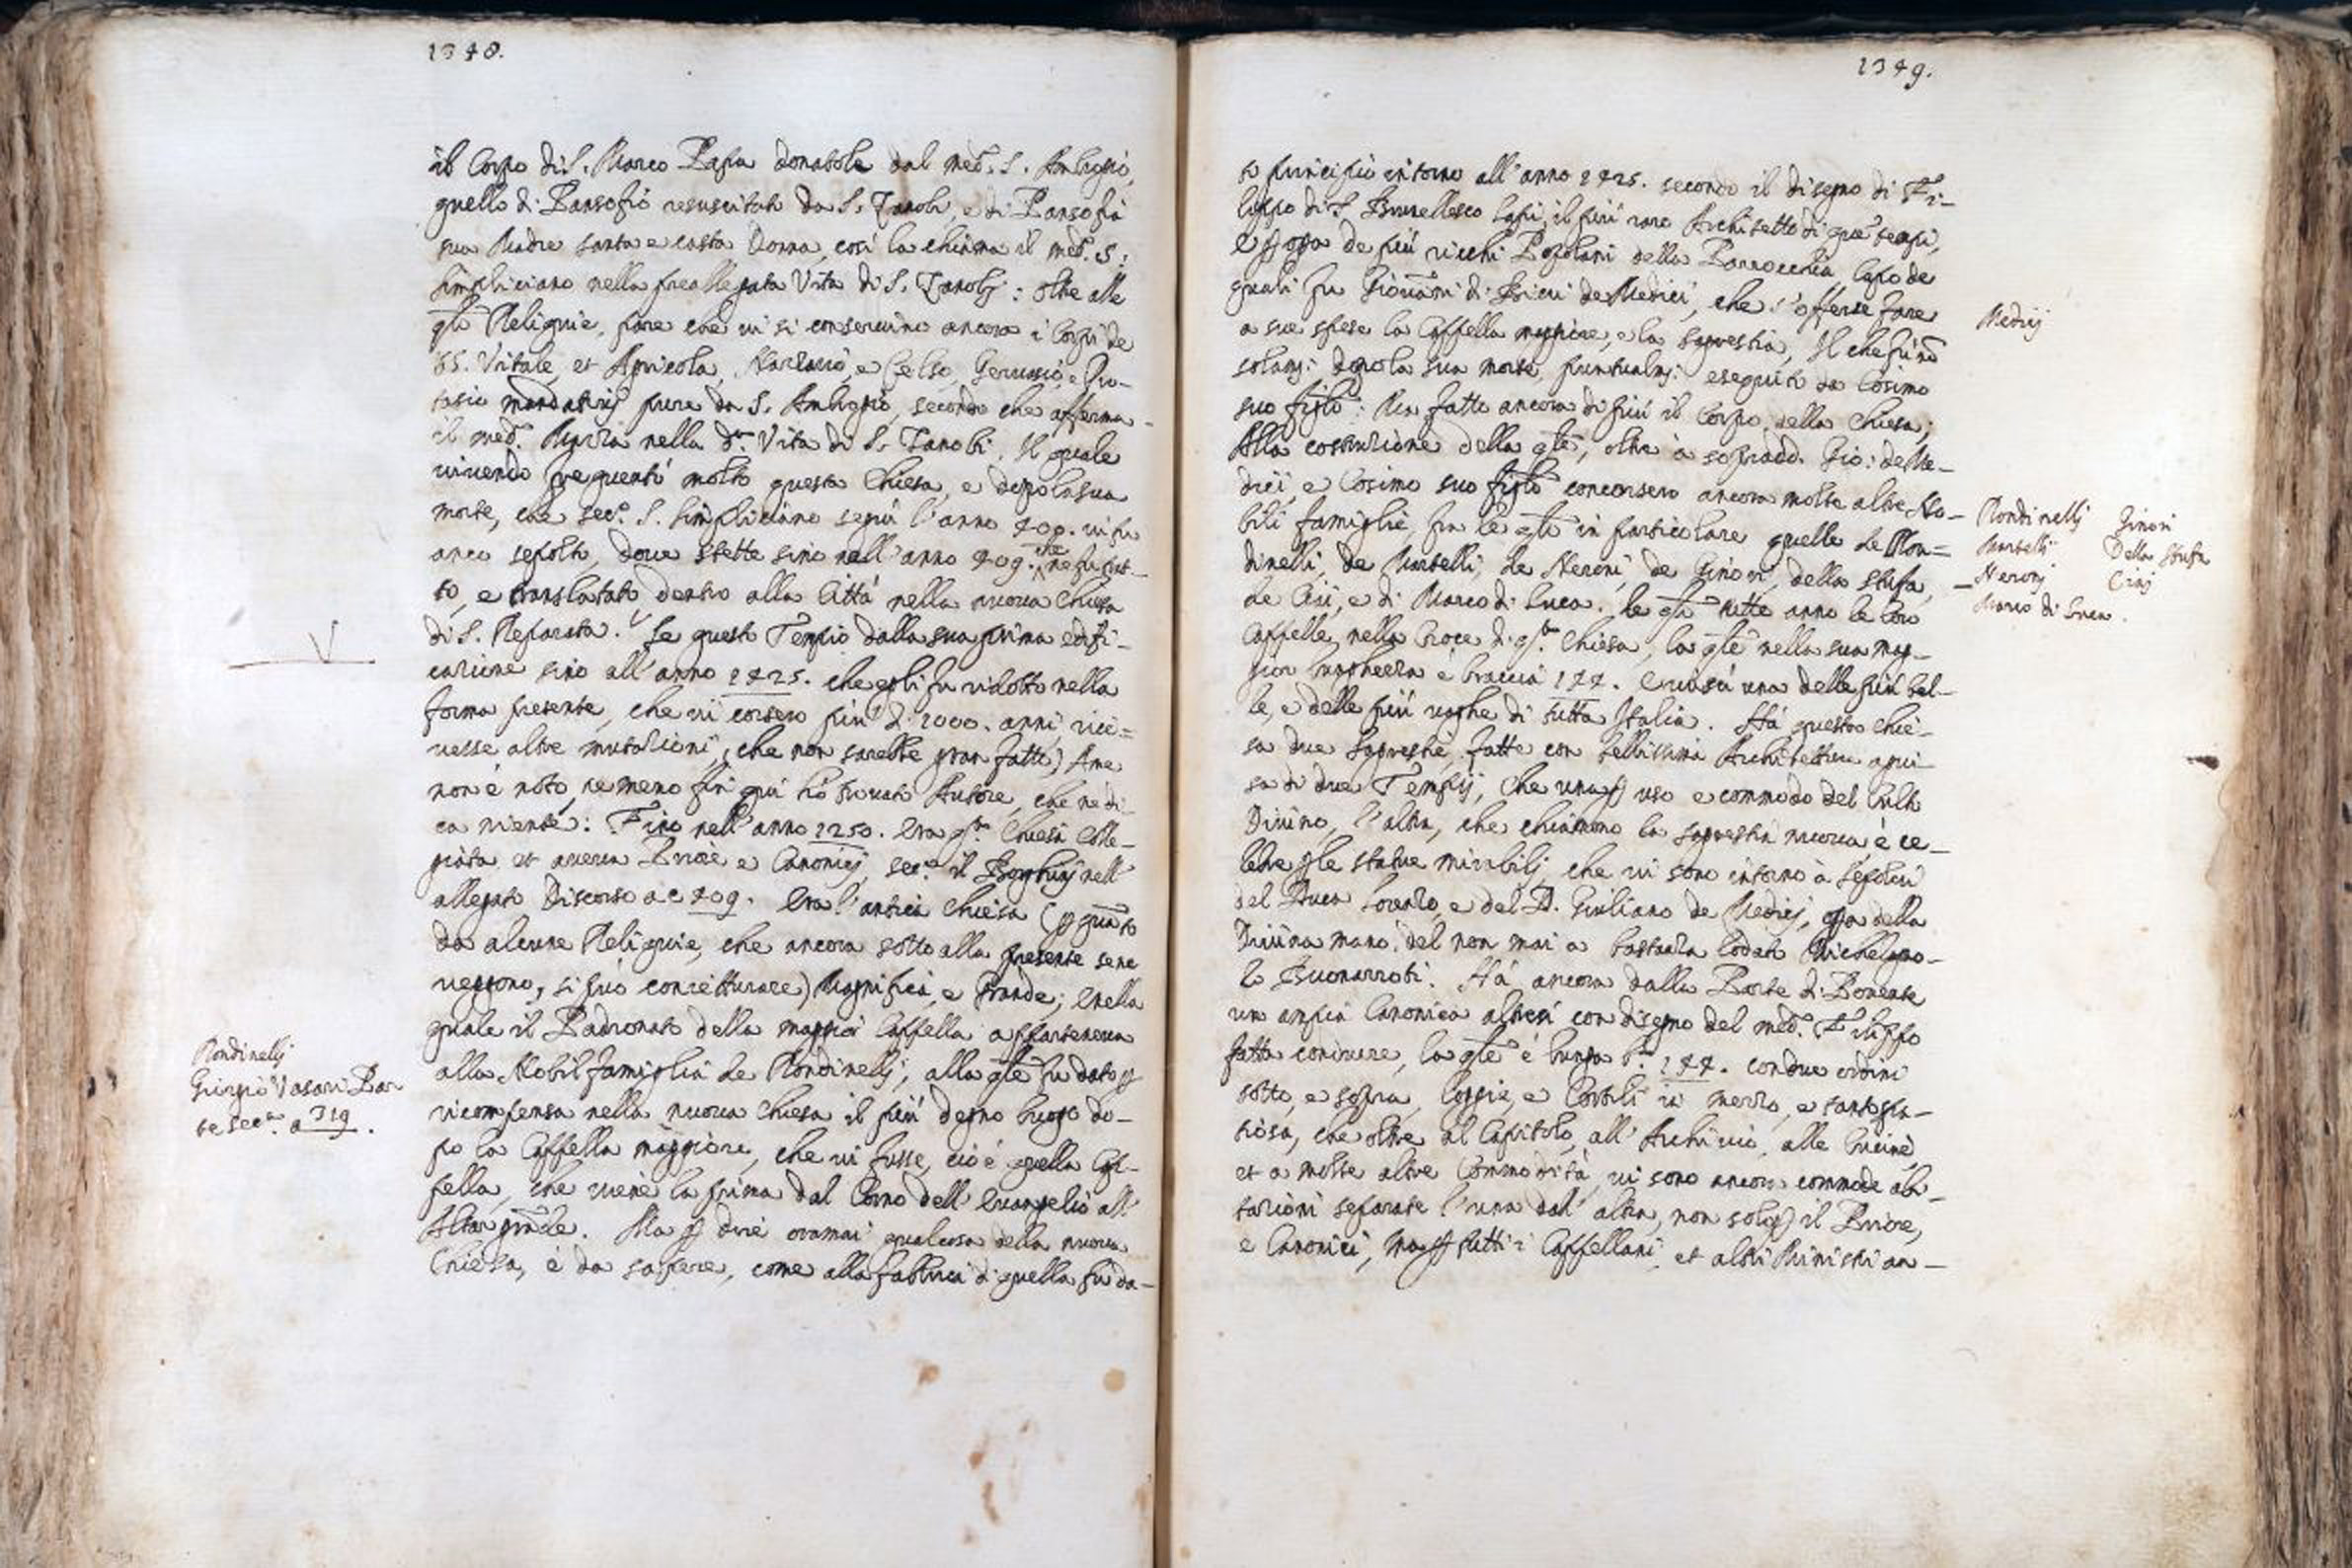 1348.
il Corpo di S. Marco Papa donatole dal med. S. Ambrogio,
quello di Pansofio resuscitato da S. Zanobi, e di Pansofia
sua Madre santa e casta Donna, così la chiama il med. S.
Simpliciano nella preallegata Vita di S. Zanobj: oltre alle
qli Reliquie, pare che vi si conservino ancora i Corpi de
SS. Vitale, et Agricola, Nazzario, e Celso, Gervasio, e Pro-
tasio mandativj pure da S. Ambrogio, secondo che afferma
il med. nella da. Vita di S. Zanobi. Il quale
vivendo frequentò molto questa Chiesa, e dopo la sua
morte, che sec.o S. Simpliciano seguì l'anno 400. vi fu
anco sepolto, dove stette sino nell'anno 409. che ne fu
to, e translatato dentro alla Città nella nuova Chiesa
di S. Reparata. Se questo Tempio dalla sua prima edifi-
cazione sino all'anno 1425. che egli fu ridotto nella
forma presente, che vi corsero più di 1000. anni rice=
vesse altre mutazioni, (che non sarebbe gran fatto) Ame
non è noto, ne meno fin quì hò trovato Autore, che ne di-
ca niente: Fino nell'anno 1250. era qta. Chiesa Colle-
giata et aveva Priore e Canonicj, sec.o il Borghinj nell'
allegato Discorso a c 409. Era l'antica Chiesa (p quanto
da alcune Reliquie, che ancora sotto alla presente se ne
veggono, si può conietturare) Magnifica e Grande; e nella
quale il Padronato della maggior Cappella apparteneva
alla Nobil famiglia de Rondinellj, alla qle fu dato p
ricompensa nella nuova Chiesa il più degno luogo do-
po la Cappella maggiore, che vi fusse, cioè quella Cap-
pella, che viene la prima dal Corno dell'Evangelio all'
Altar grande. Ma p dire oramai qualcosa della nuova
Chiesa, è da sapere, come alla fabbrica di quella fu da-
Rondinellj
Giorgio Vasari Par
te sec.a a 319.
1349.
to principio intorno all'anno 1425. secondo il disegno di Fi-
lippo di S. Brunellesco Lapi, il più raro Architetto di que' tempi,
e p opa de più ricchi Popolani della Parrocchia, Capo de
quali fu Giovanni di Bicci de Medici, che s'offerse fare
a sue spese la Cappella maggiore, e la Sagrestia, Il che fù nõ
solamᵗ: dopo la sua morte, puntualmᵗ: eseguito da Cosimo
suo figlo: Ma fatto ancora di più il Corpo della Chiesa;
Alla costruzione della qle, oltre à sopradd. Gio: de Me-
dici, e Cosimo suo figlo concorsero ancora molte altre No-
bili famiglie, fra le qli in particolare quelle de Ron=
dinelli, de Martelli, de Neroni, de Ginori, della Stufa,
de Cini, e di Marco di Luca. le qli tutte anno le loro
Cappelle nella Croce di qta. Chiesa, la qle nella sua mag-
gior lunghezza è braccia 144. e riuscì una delle più bel-
le, e delle più vaghe di tutta Italia. Hà questa Chie-
sa due Sagrestie fatte con bellissima Architettura a gui-
sa di due Tempij, che una p uso e commodo del Culto
Divino, l'altra, che chiamono la sagrestia nuova è ce-
lebre p le statue mirabilj, che vi sono intorno à Sepolcri
del Duca Lorenzo, e del D. Giuliano de Medicj, opa della
Divina mano, del non mai a bastanza lodato Michelagno-
lo Buonarroti. Hà ancora dalla Parte di Ponente
un ampia Canonica altresì con disegno del med. Filippo
fatta condurre, la qle è lunga b.a 144. con due ordini
sotto, e sopra, Loggie, e Cortili in mezzo, e tanto spa-
tiosa, che oltre al Capitolo, all'Archivio, alle Cucine,
et a molte altre Commodità, vi sono ancora commode abi-
tazioni separate l'una dal'altra, non solo p il Priore,
e Canonici, ma p tutti i Cappellani, et altri Ministri an-
Medicj
Rondinellj
Martellj
Neronj
Marco di Luca.
Ginori
Della Stufa
Cinj